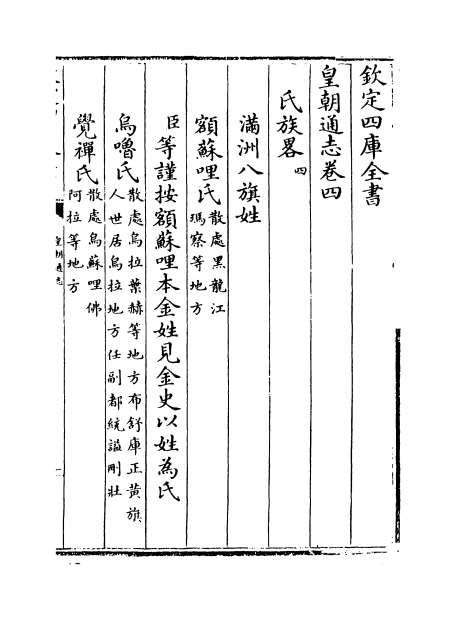 欽定四庫全書
皇朝通志卷四
氏族畧四
滿洲八旗姓
額蘇哩氏散處黑龍江
瑪察等地方
臣等謹按額蘇哩本金姓見金史以姓為氏
烏嚕氏散處烏拉葉赫等地方布舒庫正黃旗
人世居烏拉地方任副都統謚剛壯
覺禪氏散處烏蘇哩佛
阿拉等地方
皇朝通志